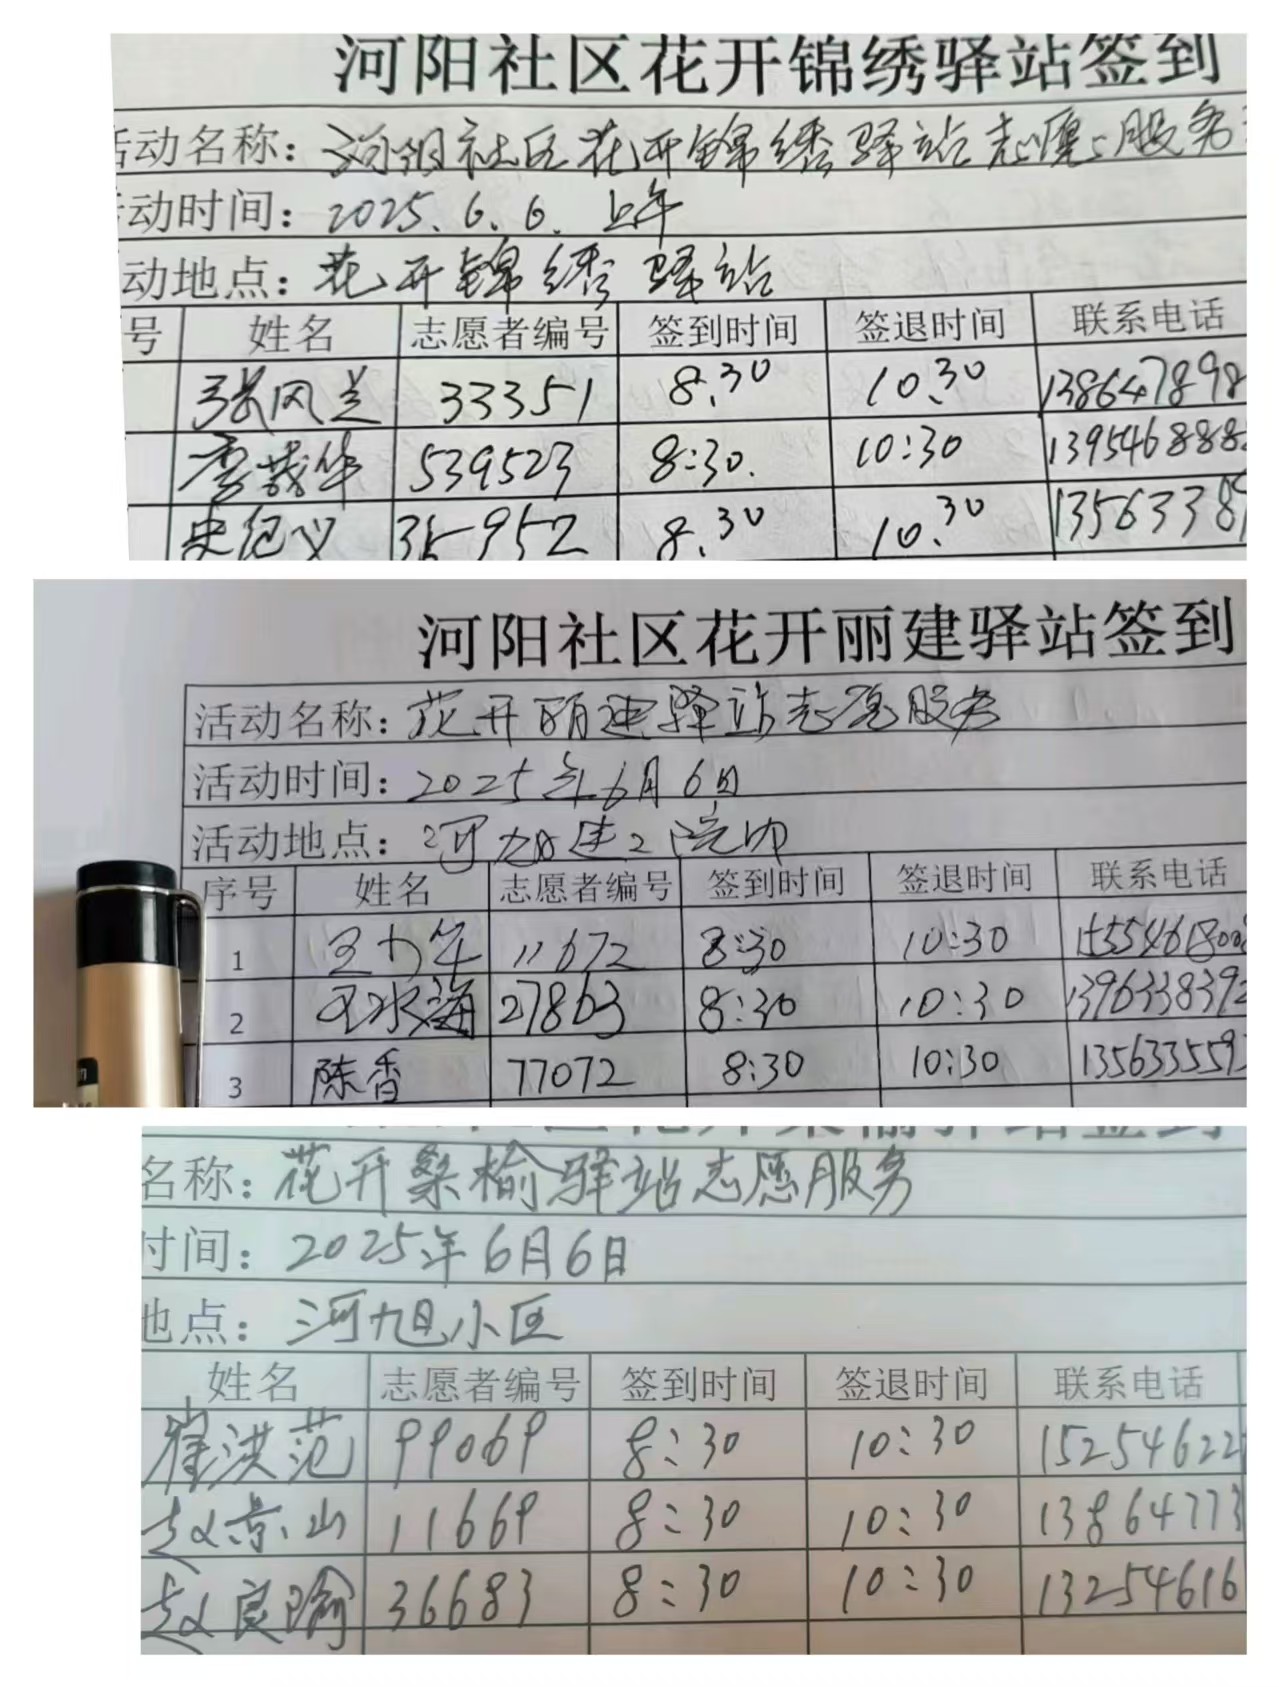 河阳社区花开锦绣驿站签到
活动名称：河阳社区花开锦绣驿站志愿服务
动时间：2025.6.6.上午
动地点：花开锦绣驿站
号 姓名 志愿者编号 签到时间 签退时间 联系电话
张风兰 33351 8.30 10.30 138647898
李茂华 539523 8:30. 10:30 139546888
史纪义 35952 8.30 10.30 13563385
河阳社区花开丽建驿站签到
活动名称：花开丽建驿站志愿服务
活动时间：2025年6月6日
活动地点：河旭建
序号 姓名 志愿者编号 签到时间 签退时间 联系电话
1 11672 8:30 10:30 155546180
2 王水海 27863 8:30 10:30 1396338392
3 陈香 77072 8:30 10:30 135633559
名称：花开桑榆驿站志愿服务
时间：2025年6月6日
地点：河旭小区
姓名 志愿者编号 签到时间 签退时间 联系电话
崔洪范 99069 8:30 10:30 15254622
赵京山 11669 8:30 10:30 13864773
赵良瑜 36683 8:30 10:30 13254616